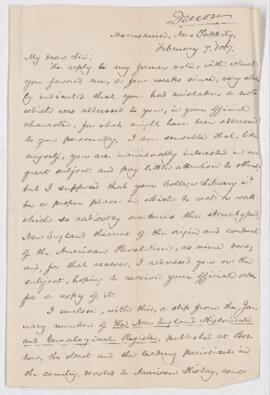 Morrisania, New York City,
February 7, 1867.
My dear Sir:
The reply to my former note, with which
you favored me, a few weeks since, very clear-
ly indicated that you had mistaken a note
which was addressed to you, in your official
character, for what might have been addressed
to you personally. I am sensible that, like
myself, you are individually interested in one
great subject and pay little attention to others;
but I supposed that your College Library is
a proper place in which to put a work
which so radically overturns the stereotyped
New England theories of the origin and conduct
of the American Revolution, as mine does;
and, for that reason, I addressed you on the
subject, hoping to receive your official order
for a copy of it.
I enclose, with this, a slip from the Jan-
uary number of The New England Historical
and Genealogical Register, published at Bos-
ton, the oldest and the leading periodical in
the country, devoted to American History,